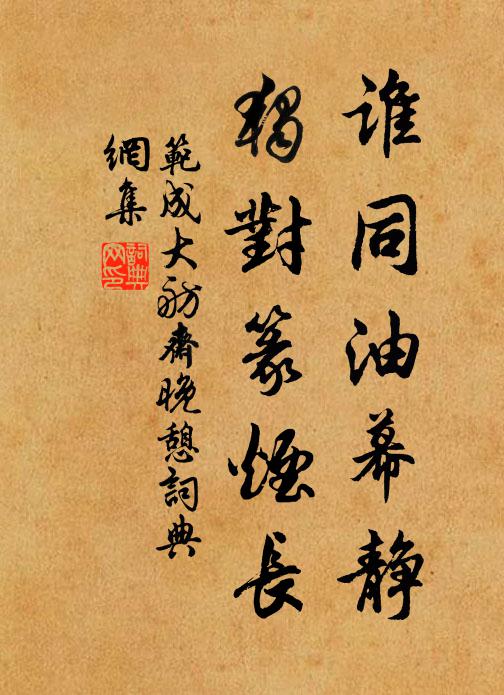 谁同油幕靜
獨對篆煙長
範成大舫齋晚憩詞典
網集
詞典網印